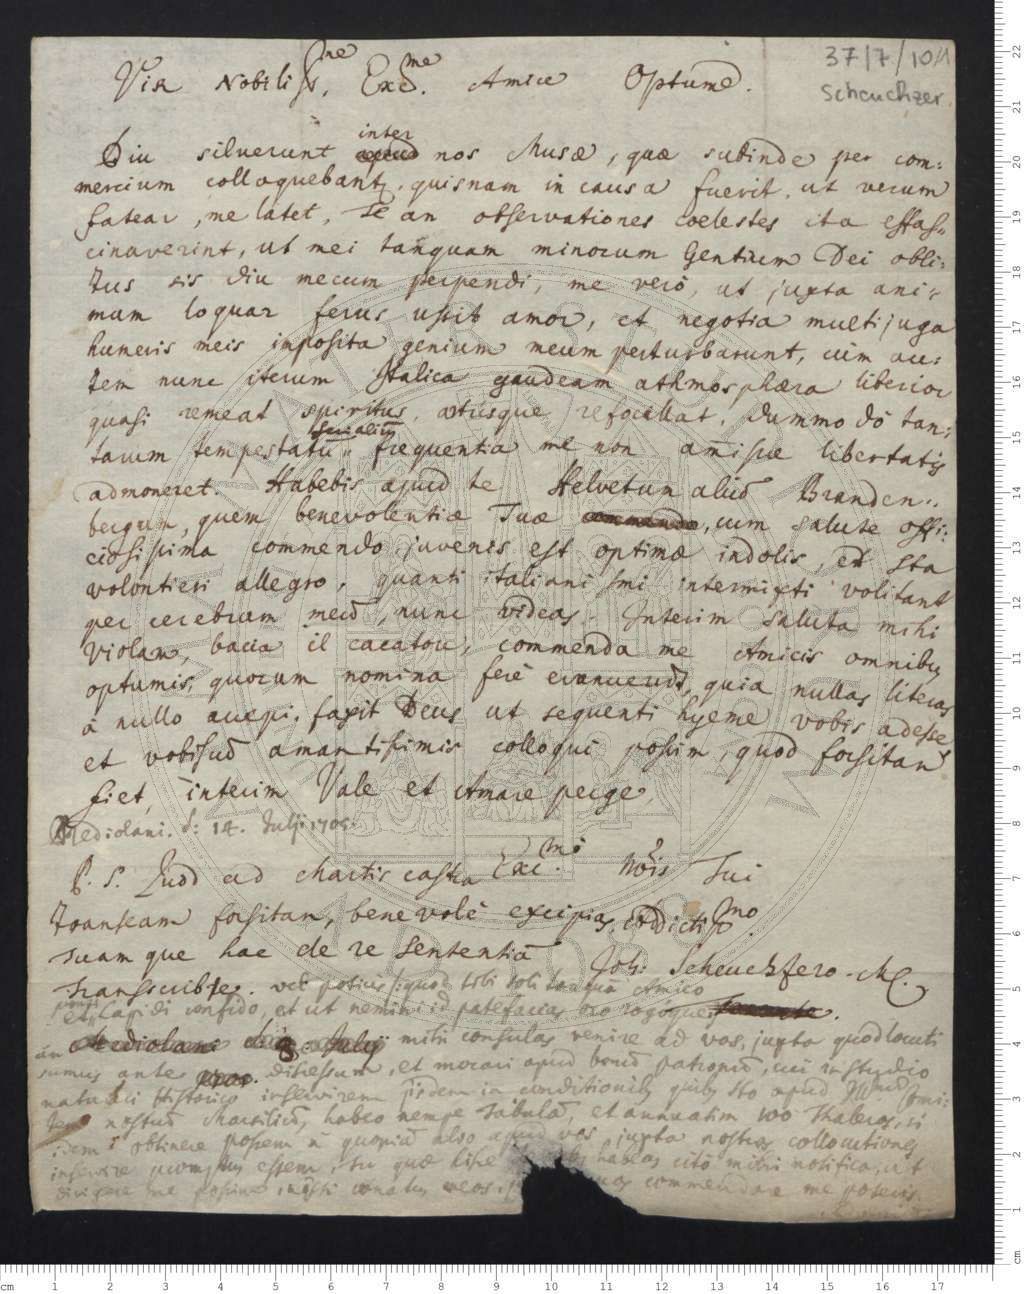 37/7/10
Scheuchzer
Vir Nobiliss.me, Exc.me Amice Optume.
Diu siluerunt inter nos Musæ, quæ subinde per com:
mercium colloquebantr. quisnam in causa fuerit, ut verum
fatear, me latet. Te an observationes coelestes ita effas-
cinaverint, ut mei tanquam minorum Gentium Dei obli:
tus sis diu mecum perpendi, me verò, ut juxta ani:
mum loquar ferus ussit amor, et negotia multijuga
humeris meis imposita genium meum perturbarunt, cùm au:
tem nunc iterum Italica gaudeam athmosphæra liberior
quasi remeat spiritus, artusque refocillat. Dummodo tan:
tarum tempestatū frequentia me non amissæ libertatis
admoneret. Habebis apud te Helvetum aliud Branden:
bergum, quem benevolentiæ Tuæ commendo, cum salute offi:
ciosissima commendo, juvenis est optimæ indolis, et sta
volontieri allegro, quanti italianismi intermixti volitant
per cerebrum meū, nunc videas. Interim saluta mihi
Violam, bacia il cacatore, commenda me Amicis omnibus
optumis, quorum nomina ferè evanuerūt, quia nullas literas
à nullo accepi, faxit Deus ut sequenti hyeme vobis adesse
et vobiscū amantissimis colloqui possim, quod forsitan
fiet, interim Vale et Amare perge.
Mediolani. d: 14. Julij 1705.
P. S. Quod ad chartis castra Exc.mi Nois Tui
transeam forsitan, benevolè excipias, Addictiss.mo
tuamque hac de re sententiā Joh: Scheuchzero. M.
transscribse. vel potius: quod tibi soli tanquā Amico
et Lapidi confido, et ut nemini id patefacias oro rogoque
an Mediolani Julij mihi consulas venire ad vos, juxta quod locuti
sumus ante discessum, et morari apud patronū, cui in studio
naturali Historico inservirem iisdem in conditionibus quibus sto apud
nostrū Marsiliū, habeo nempe tabulā, et annuatim 100 Thaleros, si
idem obtinere possem apud vos juxta nostras collocutiones
inservire promptus essem, tu quæ habeas citò mihi notifica, ut
dirigere me possim, nosti conatus meos, commendare me poteris.